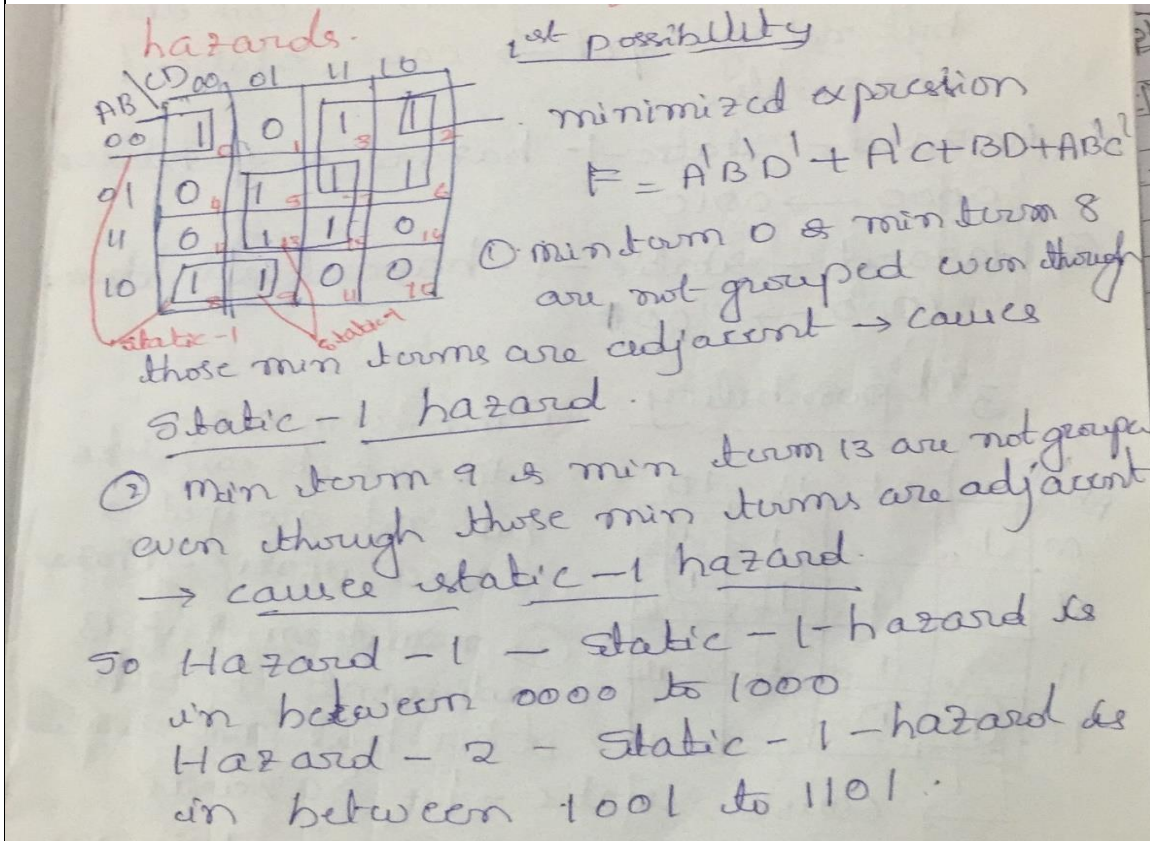 hazards.
1st possibility
AB\CD 00 01 11 10
00 1 0 0 1 1 3 1 2
01 0 4 1 5 1 7 1 6
11 0 12 1 13 1 15 0 14
10 1 8 1 9 0 11 0 10
static-1 static-1
minimized exprestion
F = A'B'D' + A'C + BD + AB'C'
① min term 0 & min term 8
are not grouped even though
those min terms are adjacent → causes
Static - 1 hazard.
② min term 9 & min term 13 are not groupe
even though those min terms are adjacent
→ cause static - 1 hazard.
so Hazard - 1 - static - 1 - hazard is
in between 0000 to 1000
Hazard - 2 - Static - 1 - hazard is
in between 1001 to 1101.